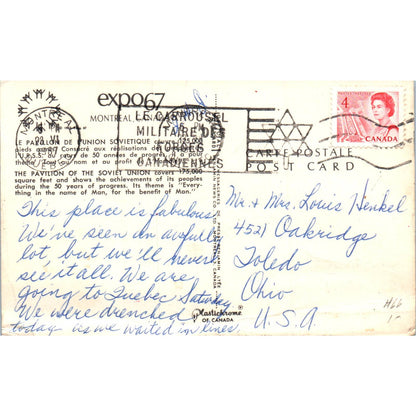 expo67
MONTREAL, CANADA
MONTREAL
28 VI
1967
LE CARROUSEL
MILITAIRE DES
HORDES
CANADIENNES
4
CANADA
CARTE POSTALE
POST CARD
LE PAVILLON DE L'UNION SOVIETIQUE couvre
pieds carrés. Consacré aux réalisations des
l'U.R.S.S. au cours de 50 années de progrès, il a pour
thème "Tout au nom et au profit de l'Homme".
THE PAVILION OF THE SOVIET UNION covers 175,000
square feet and shows the achievements of its peoples
during the 50 years of progress. Its theme is "Every-
thing in the name of Man, for the benefit of Man".
This place is fabulous
We've seen an awfully
lot, but we'll never
see it all. We are
going to Quebec Saturday
We were drenched
today as we waited in lines.
Mr. & Mrs. Louis Henkel
4521 Oakridge
Toledo
Ohio
U.S.A.
Plastichrome®
OF CANADA